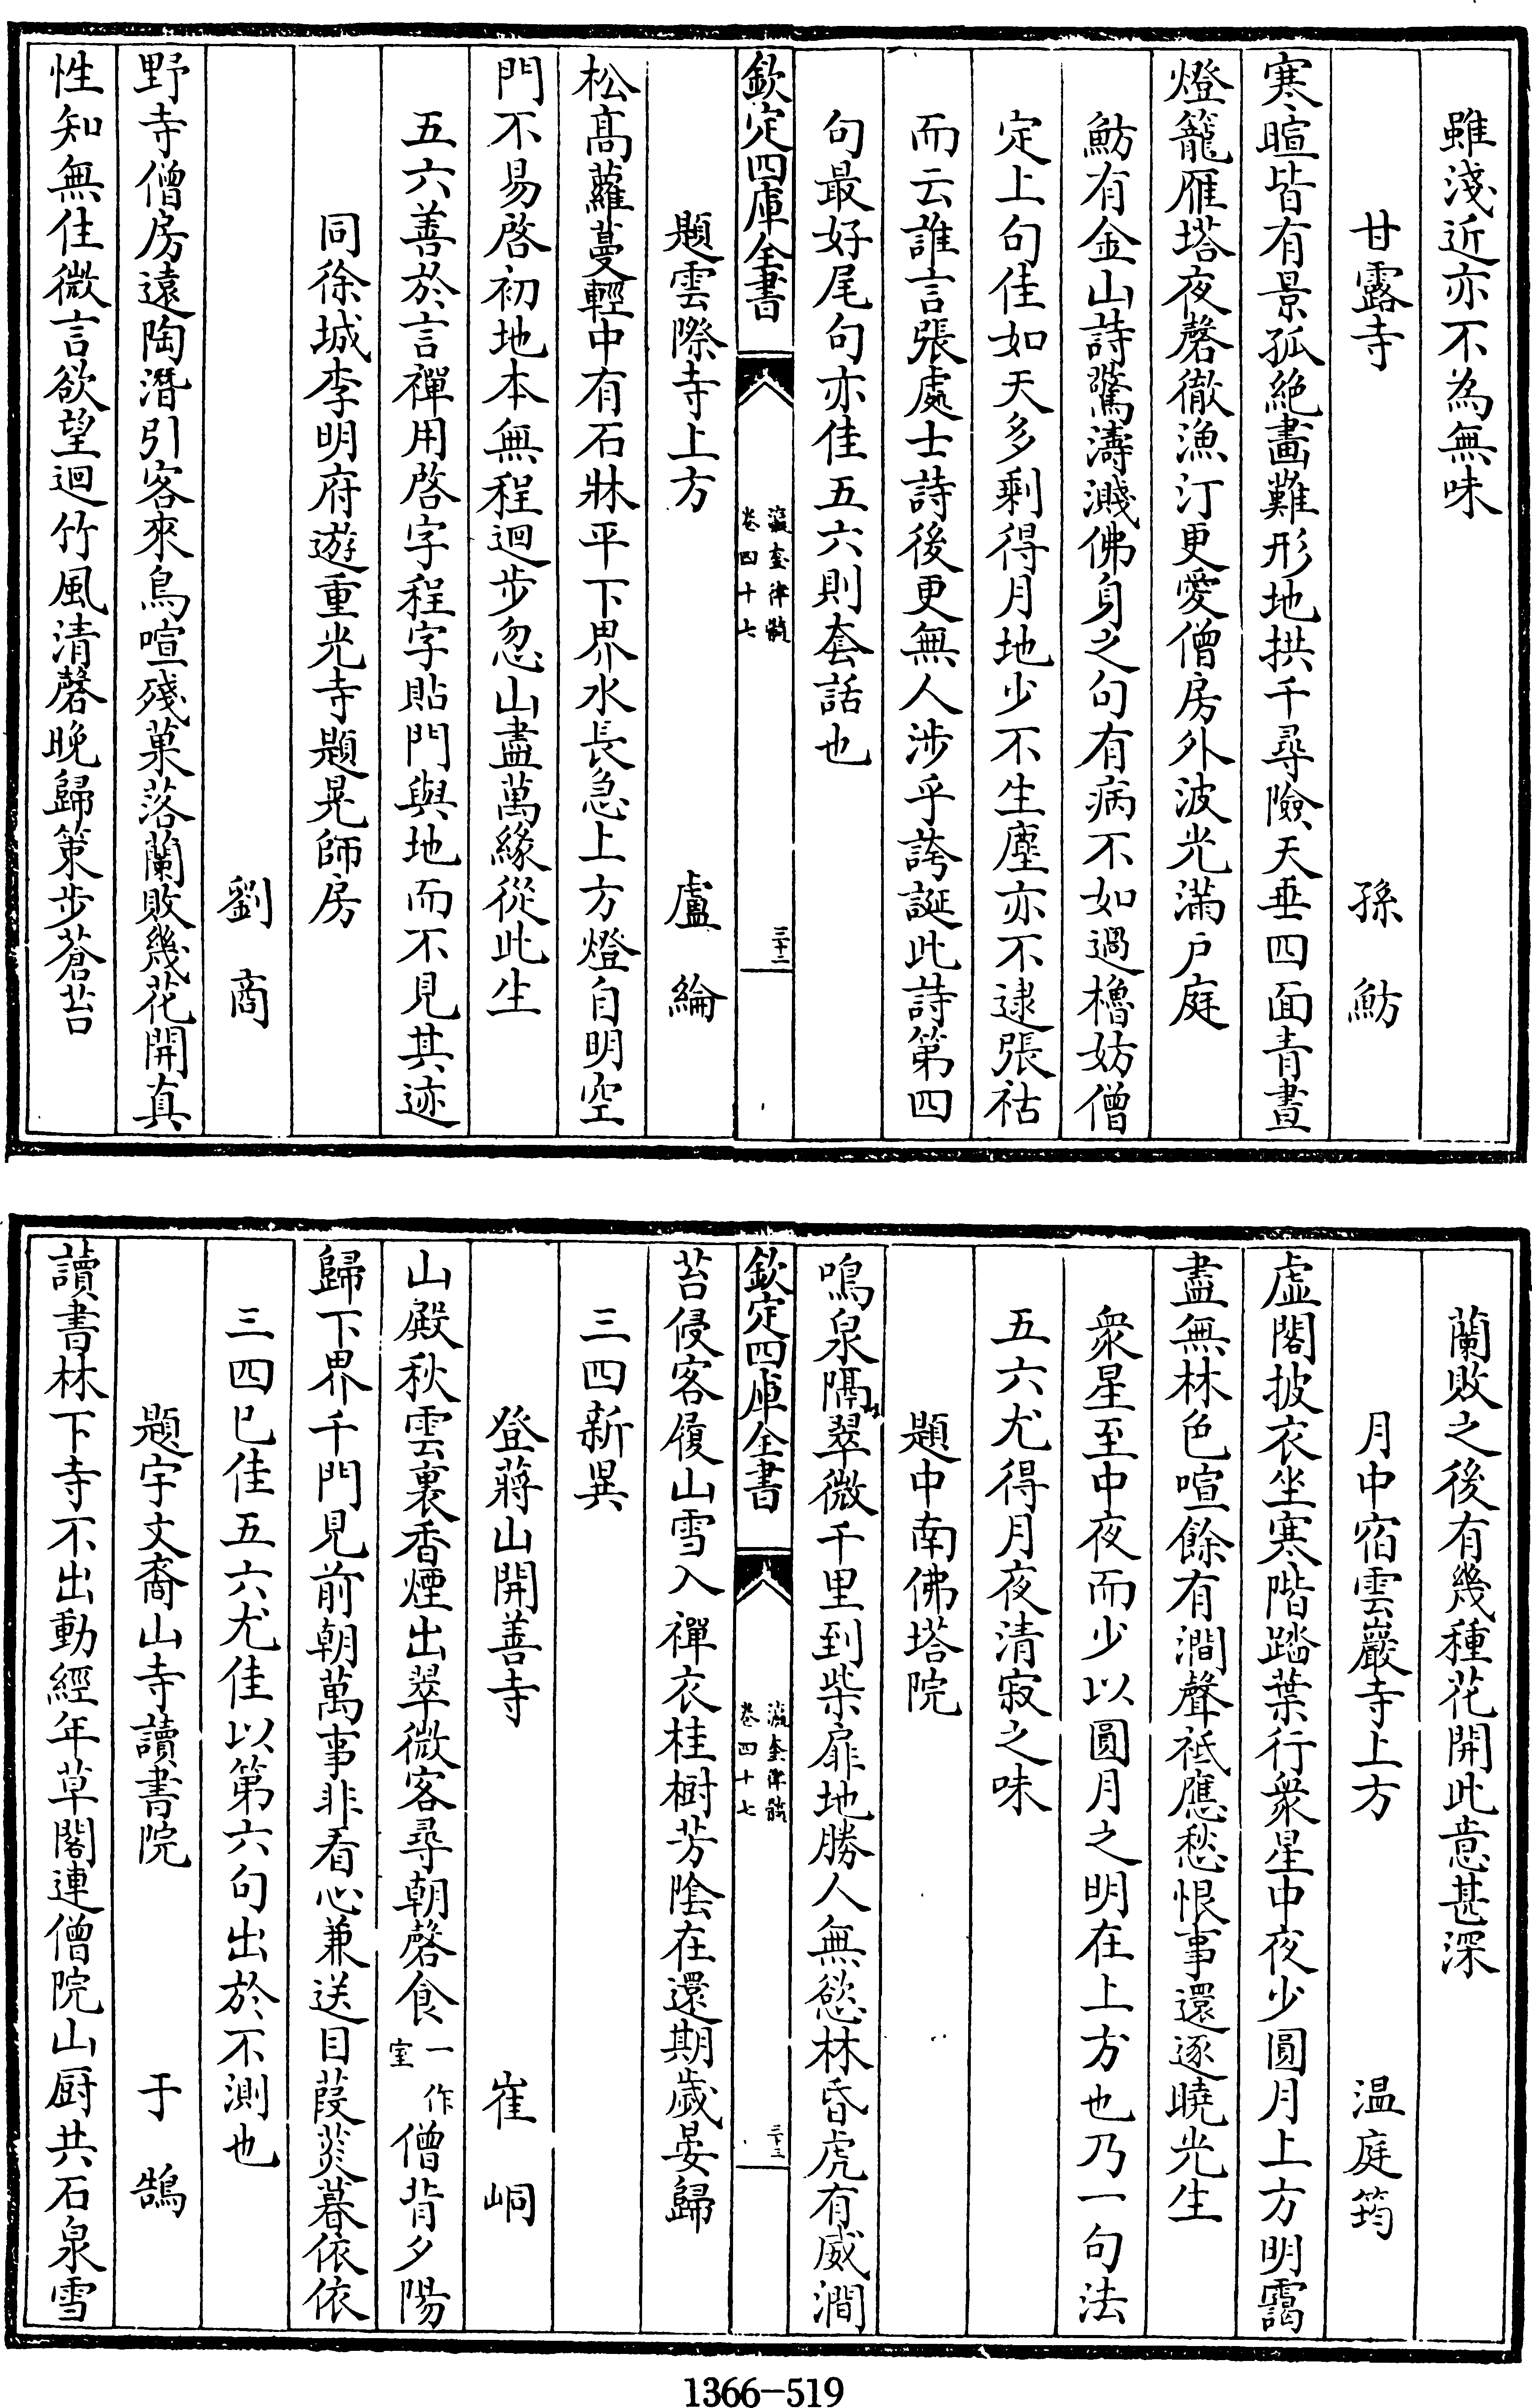 雖淺近亦不為無味
甘露寺 孫魴
寒暄皆有景孤絶畫難形地拱千尋險天垂四面青晝
燈籠雁塔夜磬徹漁汀更愛僧房外波光滿户庭
魴有金山詩驚濤濺佛身之句有病不如過櫓妨僧
定上句佳如天多剩得月地少不生塵亦不逮張祜
而云誰言張處士詩後更無人涉乎誇誕此詩第四
句最好尾句亦佳五六則套話也
欽定四庫全書 瀛奎律髓 卷四十七 三十二
題雲際寺上方 盧綸
松髙蘿蔓輕中有石牀平下界水長急上方燈自明空
門不易啓初地本無程迴步忽山盡萬緣從此生
五六善於言禪用啓字程字貼門與地而不見其迹
同徐城李明府遊重光寺題晃師房
劉商
野寺僧房遠陶潛引客來鳥喧殘菓落蘭敗幾花開真
性知無住微言欲望迴竹風清磬晚歸策步蒼苔
蘭敗之後有幾種花開此意甚深
月中宿雲巖寺上方 温庭筠
虚閣披衣坐寒階踏葉行衆星中夜少圓月上方明靄
盡無林色喧餘有澗聲祗應愁恨事還逐曉光生
衆星至中夜而少以圓月之明在上方也乃一句法
五六尤得月夜清寂之味
題中南佛塔院
鳴泉隔翠微千里到柴扉地勝人無慾林昏虎有威澗
欽定四庫全書 瀛奎律髓 卷四十七 三十三
苔侵客履山雪入禪衣桂樹芳陰在還期歲晏歸
三四新異
登蔣山開善寺 崔峒
山殿秋雲裏香煙出翠微客尋朝磬食一作室僧背夕陽
歸下界千門見前朝萬事非看心兼送目葭菼暮依依
三四已佳五六尤佳以第六句出於不測也
題宇文裔山寺讀書院 于鵠
讀書林下寺不出動經年草閣連僧院山厨共石泉雪
1366-519